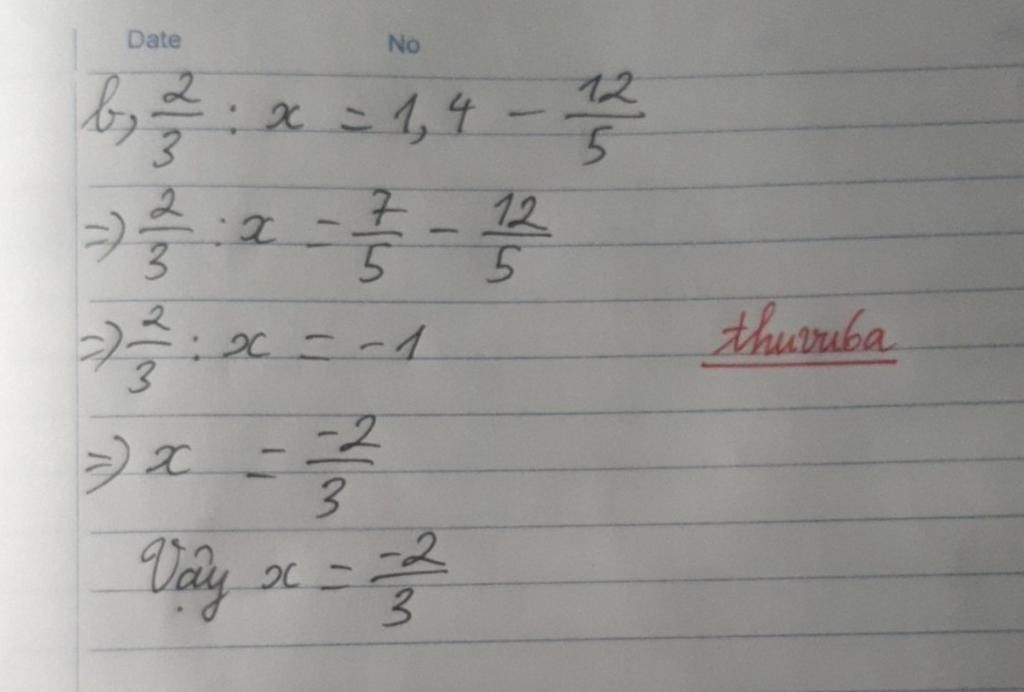 Date No
b, 2/3 : x = 1,4 - 12/5
=> 2/3 : x = 7/5 - 12/5
=> 2/3 : x = -1
thuvuba
=> x = -2/3
Vậy x = -2/3